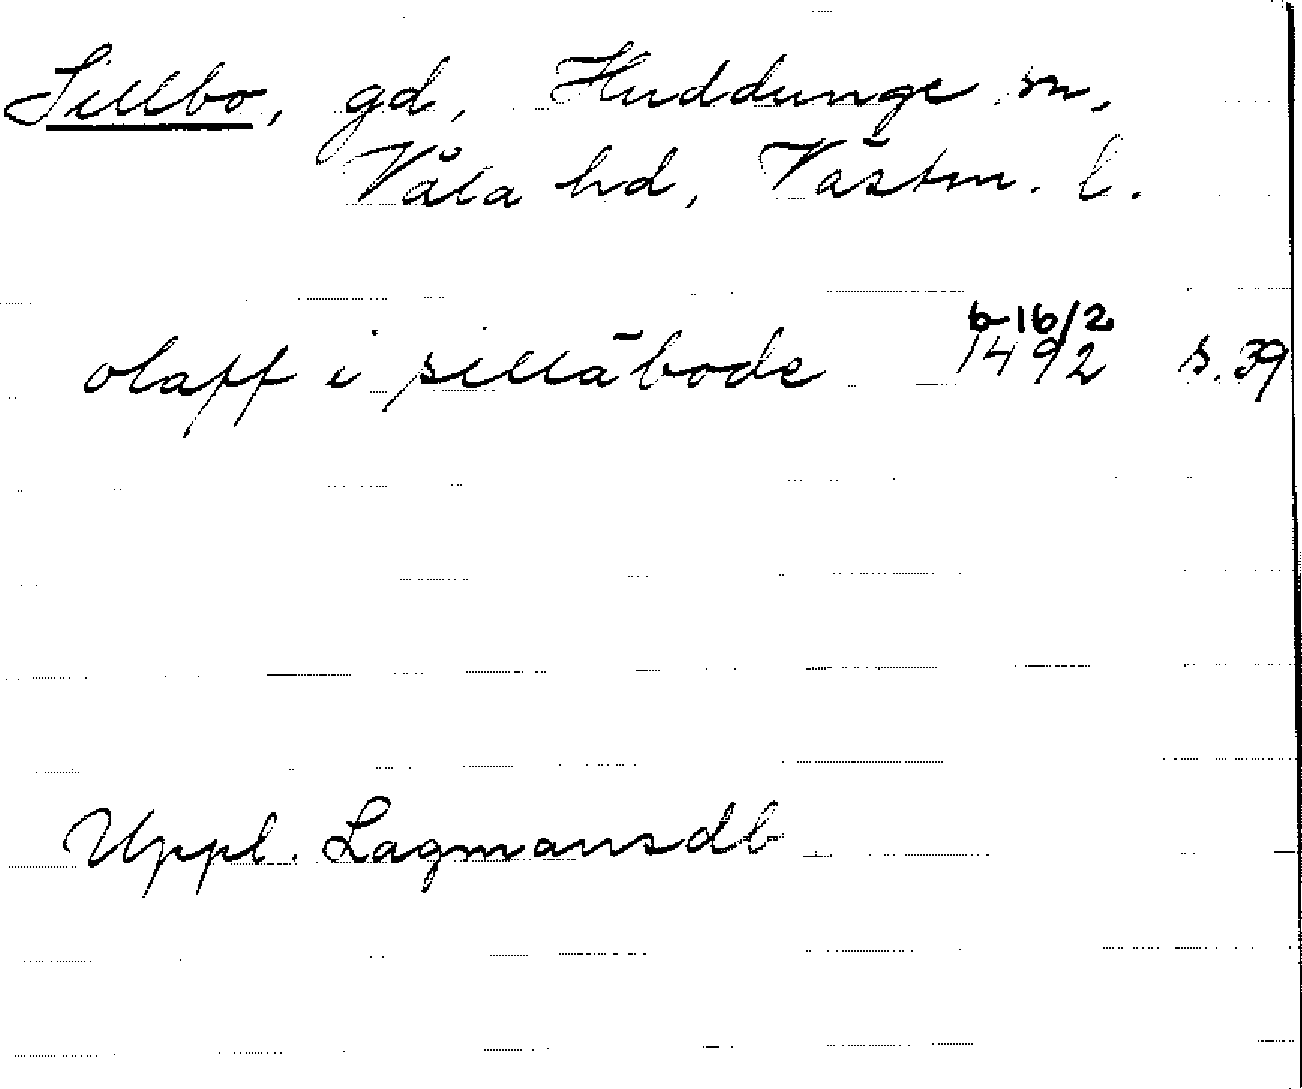 Sillbo, gd, Huddunge sn,
Våla hd, Västm. l.
6-16/2
olaff i sillābode 1492 s. 39
Uppl. Lagmansdb